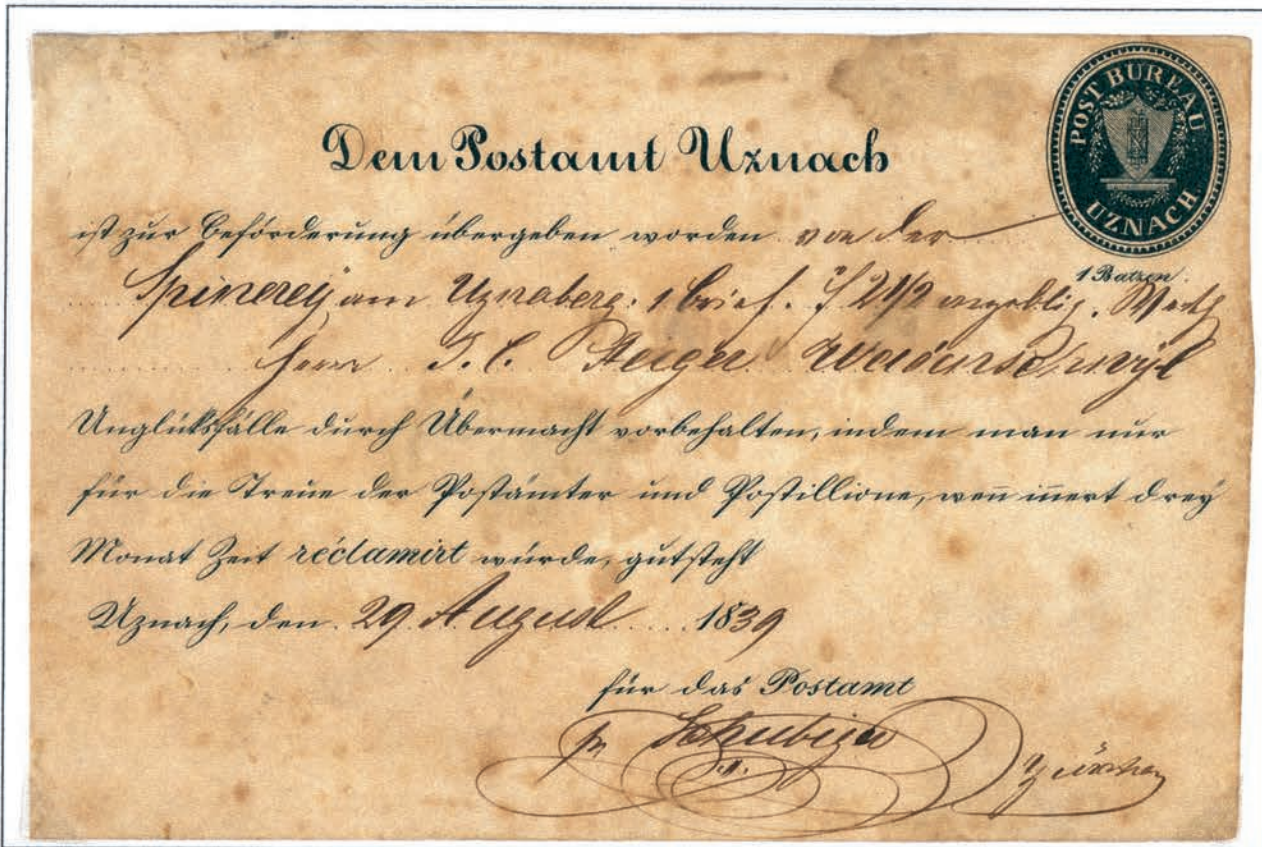 POST BUREAU
UZNACH
1 Batzen.
Dem Postamt Uznach
ist zur Beförderung übergeben worden von der
Spinerey am Uznaberg. 1 Brief. f 21/2
Herrn J. C. Steiger
Unglüksfälle durch Übermacht vorbehalten, indem man nur
für die Treue der Postämter und Postillione, wen̄ in̄ert drey
Monat Zeit réclamirt würde, gutsteht
Uznach, den 29 August 1839
für das Postamt
Schubiger